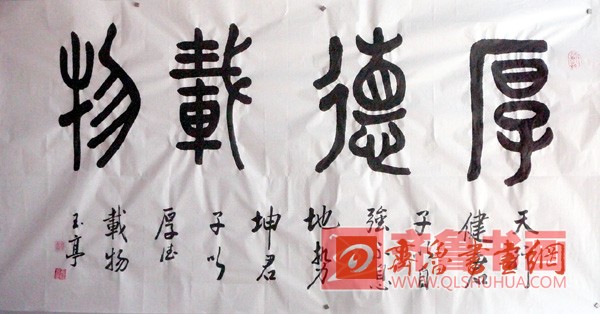 厚德載物
天行
健君
子自
強不息
地勢
坤君
子以
厚德
載物
玉亭
齊魯書畫網
WWW.QLSHUHUA.COM